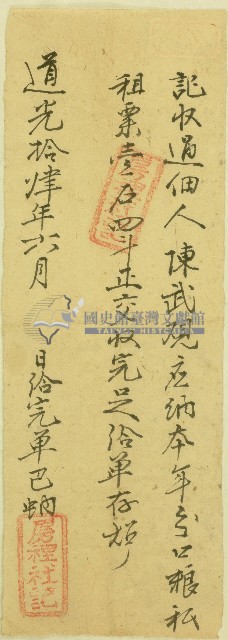 記收過佃人陳武現應納本年分口粮租
租粟壹石四斗正交收完足給單存炤
道光拾肆年六月 日給完單已納
房裡社記
國史館臺灣文獻館
TAIWAN HISTORICA